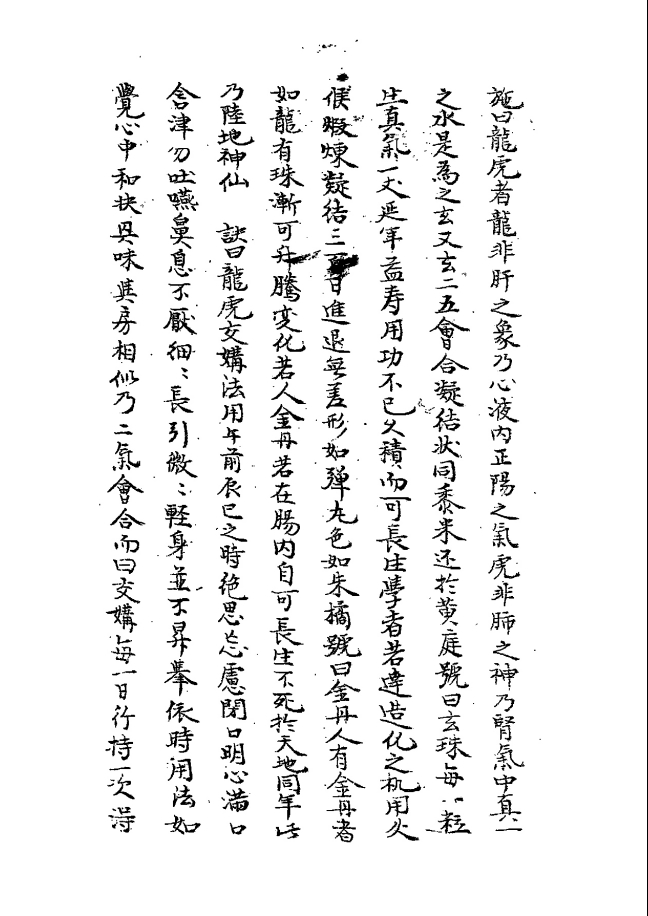 施曰龍虎者龍非肝之象乃心液内正陽之氣虎非肺之神乃腎氣中真一
之水是為之玄又玄二五會合凝结状同黍米还於黄庭號曰玄珠每一粒
生真氣一丈延年益寿用功不已久積而可長生學者若達造化之机用火
候煅煉凝结三百日進退無差形如弹丸色如朱橘號曰金丹人有金丹者
如龍有珠漸可升騰变化若人金丹若在腸内自可長生不死於天地同年此
乃陸地神仙 訣曰龍虎交媾法用午前辰巳之時绝思忘慮閉口明心满口
含津勿吐嚥鼻息不厭细〻長引微〻軽身並不昇舉依時用法如
覺心中和抉其味其房相似乃二氣會合而曰交媾每一日行持一次得